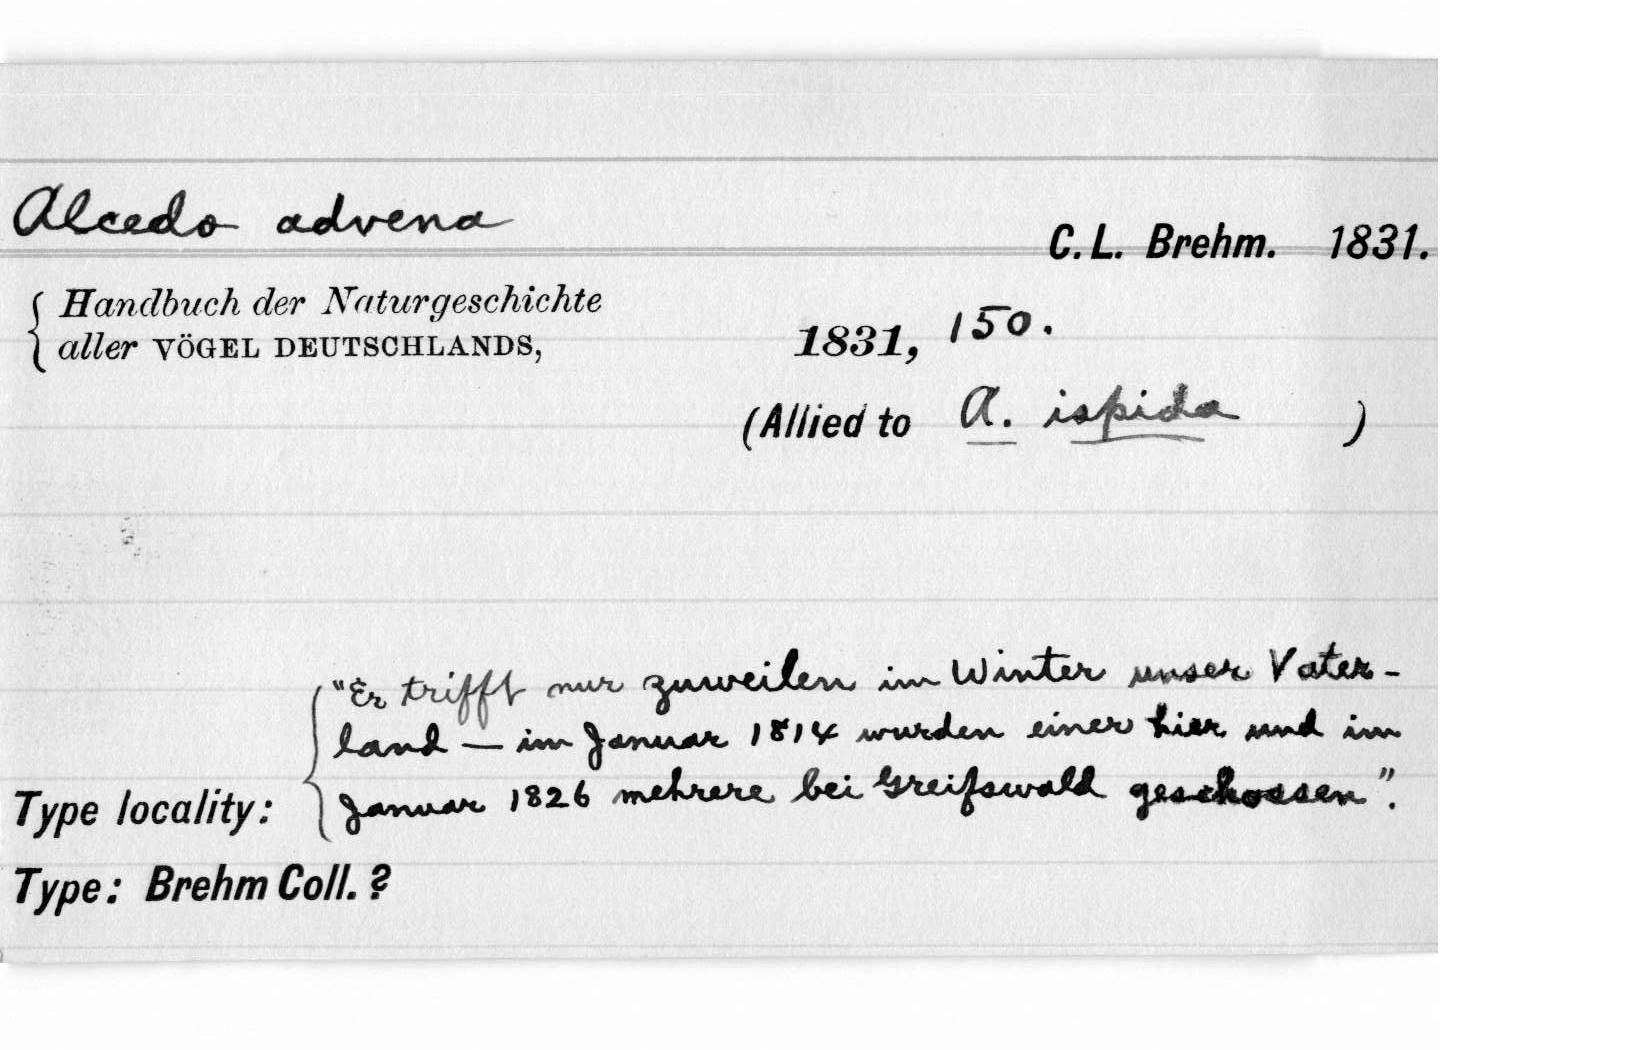 Alcedo advena
C. L. Brehm. 1831.
Handbuch der Naturgeschichte
aller VÖGEL DEUTSCHLANDS,
1831, 150.
(Allied to A. ispida )
"Er trifft nur zuweilen im Winter unser Vater-
land — im Januar 1814 wurden einer hier und im
Januar 1826 mehrere bei Greifswald geschossen".
Type locality:
Type: Brehm Coll. ?